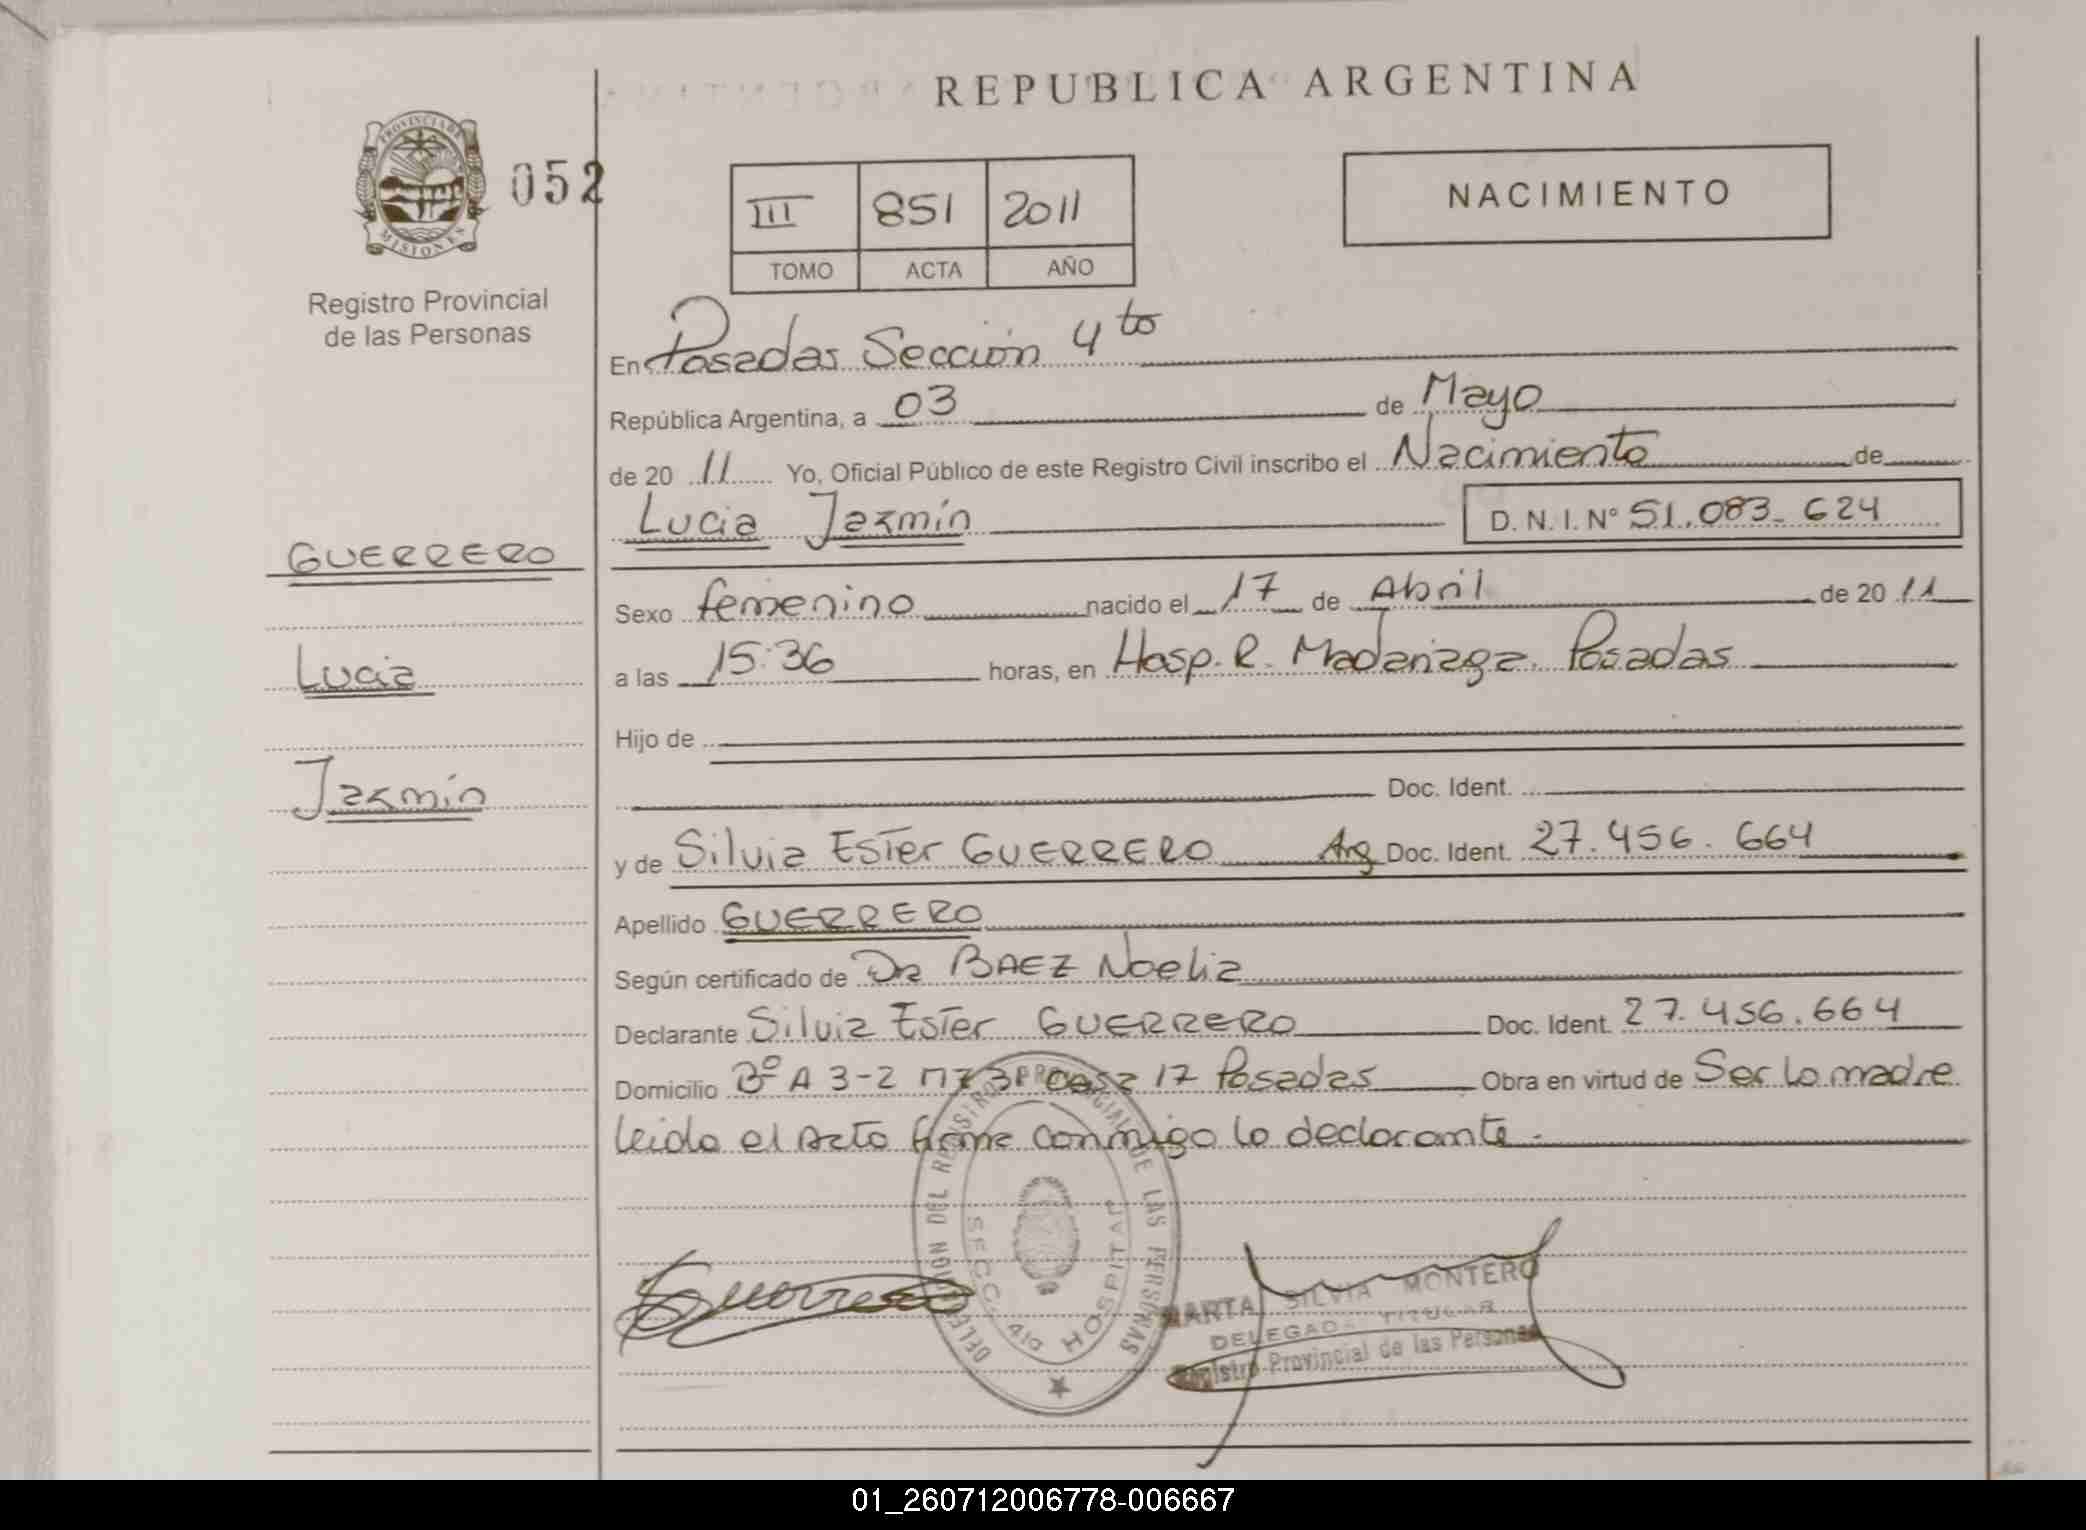 REPUBLICA ARGENTINA
PROVINCIA DE
MISIONES
052
Registro Provincial
de las Personas
III 851 2011
TOMO ACTA AÑO
NACIMIENTO
En Posadas Sección 4to
República Argentina, a 03 de Mayo
de 20 11 Yo, Oficial Público de este Registro Civil inscribo el Nacimiento de
Lucia Jazmín D. N. I. Nº 51.083.624
GUERRERO
Lucia
Jazmín
Sexo femenino nacido el 17 de Abril de 20 11
a las 15:36 horas, en Hosp. R. Madariaga. Posadas
Hijo de
Doc. Ident.
y de Silvia Ester GUERRERO Arg Doc. Ident. 27.456.664
Apellido GUERRERO
Según certificado de Dra BAEZ Noelia
Declarante Silvia Ester GUERRERO Doc. Ident. 27.456.664
Domicilio Bº A 3-2 casa 17 Posadas Obra en virtud de Ser la madre
leida el Acta firma conmigo la declarante.
DELEGACION DEL REGISTRO PROVINCIAL DE LAS PERSONAS
SECC. 4ta HOSPITAL
Guerrero
MARTA SILVIA MONTERO
DELEGADA TITULAR
Registro Provincial de las Personas
01_260712006778-006667